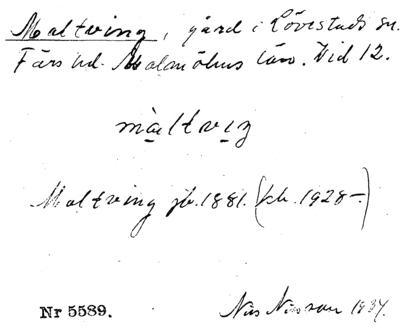 Maltving, gård i Lövestads sn.
Färs hd. Malmöhus län. Vid 12.
màltvıŋ
Maltving jb. 1881. (kb. 1928–)
Nr 5589.
Nils Nilsson 1934.